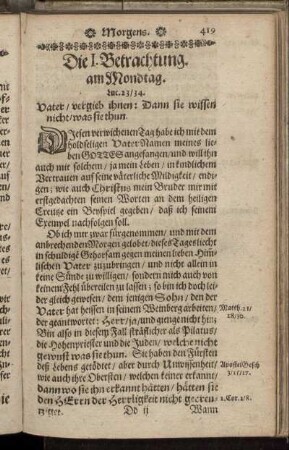 Morgens. 419
Die I. Betrachtung.
am Mondtag.
Luc. 23/34.
Vater/ vergieb ihnen: Dann sie wissen
nicht/ was sie thun.
Diesen verwichenen Tag habe ich mit dem
holdseligen Vater Namen meines lie-
ben GOTTES angefangen, und will ihn
auch mit solchem/ ja mein Leben/ in kindlichem
Vertrauen auf seine väterliche Mildigkeit/ endi-
gen; wie auch Christus mein Bruder mir mit
erstgedachten seinen Worten an dem heiligen
Creutze ein Beyspiel gegeben/ daß ich seinem
Exempel nachfolgen soll.
Ob ich mir zwar fürgenommen/ und mit dem
anbrechenden Morgen gelobet/ dieses Tages liecht
in schuldigē Gehorsam gegen meinen lieben Him̄-
lischen Vater zuzubringen/ und nicht allein in
keine Sünde zu willigen/ sondern mich auch von
keinem Fehl übereilen zu lassen; so bin ich doch lei-
der gleich gewesen/ dem jenigen Sohn/ den der
Vater hat heissen in seinem Weinberg arbeiten/
der geantwortet: Herr/ ja/ und gienge nicht hin;
Bin also in diesem Fall sträflicher als Pilatus/
die Hohenpriester und die Juden/ welche nicht
gewust was sie thun. Sie haben den Fürsten
deß Lebens getödtet/ aber durch Unwissenheit/
wie auch ihre Obersten/ welchen keiner erkannt/
dann wo sie ihn erkannt hätten/ hätten sie
den HErrn der Herrligkeit nicht gecreu-
tziget. Dd ij Wann
Matth. 21/
28/30.
ApostelGesch.
3/15/17.
1. Cor. 2/8.